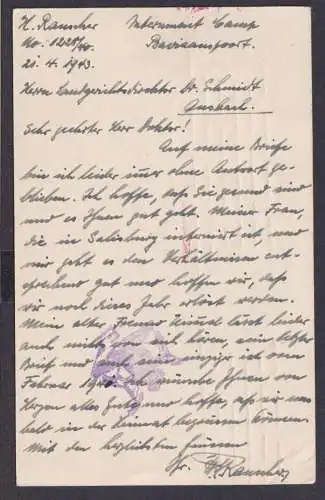 H. Rauscher Internment Camp
No. 1225/40. Baviaanspoort.
21. 4. 1943.
Herrn Landgerichtsdirektor Dr. Schmidt
Ansbach.
Sehr geehrter Herr Doktor!
Auf meine Briefe
bin ich leider immer ohne Antwort ge-
blieben. Ich hoffe, daß Sie gesund sind
und es Ihnen gut geht. Meiner Frau,
die in Salisbury interniert ist, und
mir geht es den Verhältnissen ent-
sprechend gut und hoffen wir, daß
wir noch dieses Jahr erlöst werden.
Mein alter Freund läßt leider
auch nichts von sich hören, sein letzter
Brief und einziger ist vom
Februar Ich wünsche Ihnen von
Herzen alles Gute und hoffe, daß wir uns
bald in der Heimat begrüssen können.
Mit den herzlichsten Grüssen
Ihr H. Rauscher